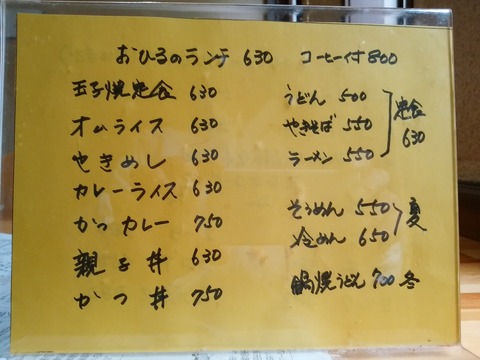 おひるのランチ 630 コーヒー付 800
玉子焼定食 630
オムライス 630
やきめし 630
カレーライス 630
かつカレー 750
親子丼 630
かつ丼 750
うどん 500
やきそば 550
ラーメン 550
定食 630
そうめん 550
冷めん 650
夏
鍋焼うどん 700 冬